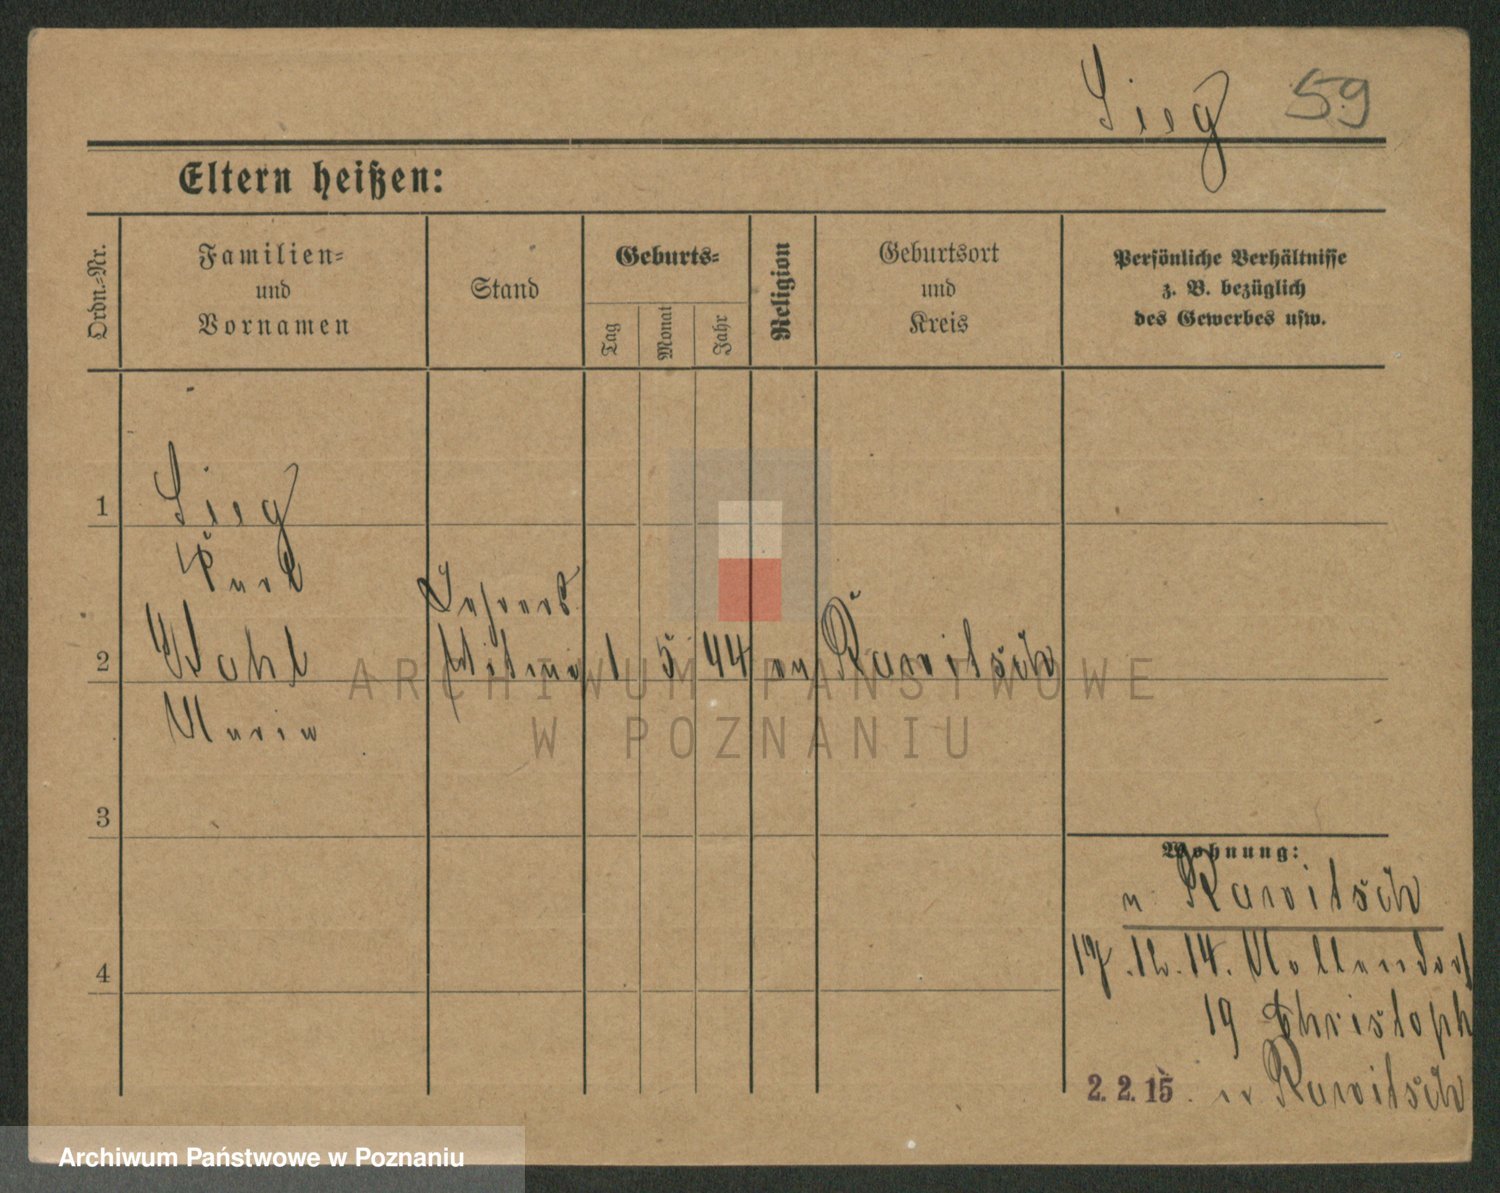 Sieg 59
Eltern heißen:
Ordn.-Nr.
Familien-
und
Vornamen
Stand
Geburts-
Tag
Monat
Jahr
Religion
Geburtsort
und
Kreis
Persönliche Verhältnisse
z. B. bezüglich
des Gewerbes usw.
1
Sieg
Karl
2
Wahl
Maria
Witwe
1 5 44 ev Rawitsch
3
4
Wohnung:
n Rawitsch
17.12.14. Nollendorf
19 Christoph
2.2.15. Rawitsch
ARCHIWUM PAŃSTWOWE
W POZNANIU
Archiwum Państwowe w Poznaniu